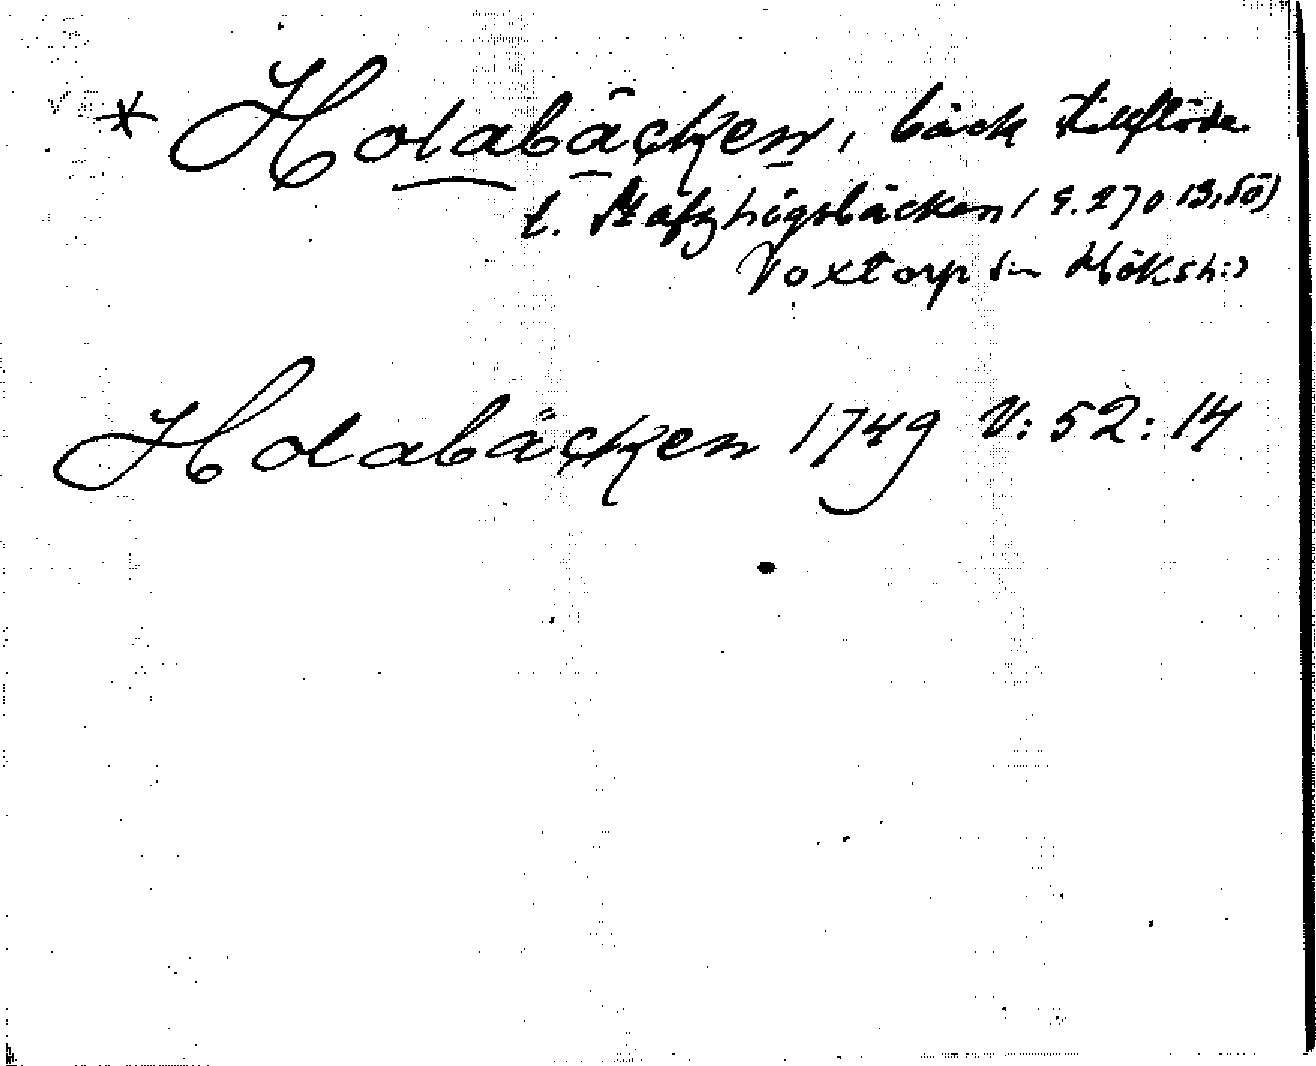 * Holabäcken, bäck tillflöde
t. Stafzhögsbäcken (E. 270 B, Sö)
Voxtorp sn
Holabäcken 1749 V: 52: 14